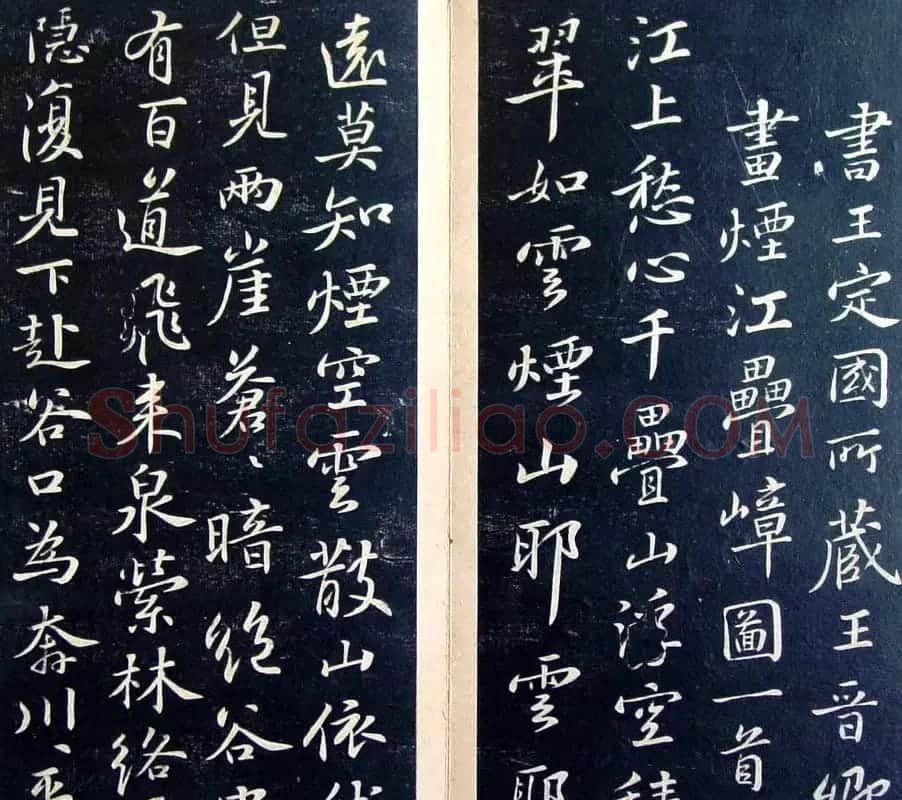 書王定國所藏王晉卿
畫煙江疊嶂圖一首
江上愁心千疊山浮空積
翠如雲煙山耶雲耶
遠莫知煙空雲散山依
但見兩崖蒼〻暗絕谷
有百道飛來泉縈林絡
隱復見下赴谷口為奔川〻平
Shufaziliao.COM